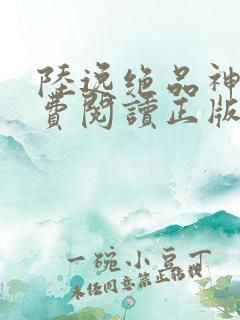 陸逸绝品神
費閱讀正版
一碗小豆丁
未经同意禁止转载